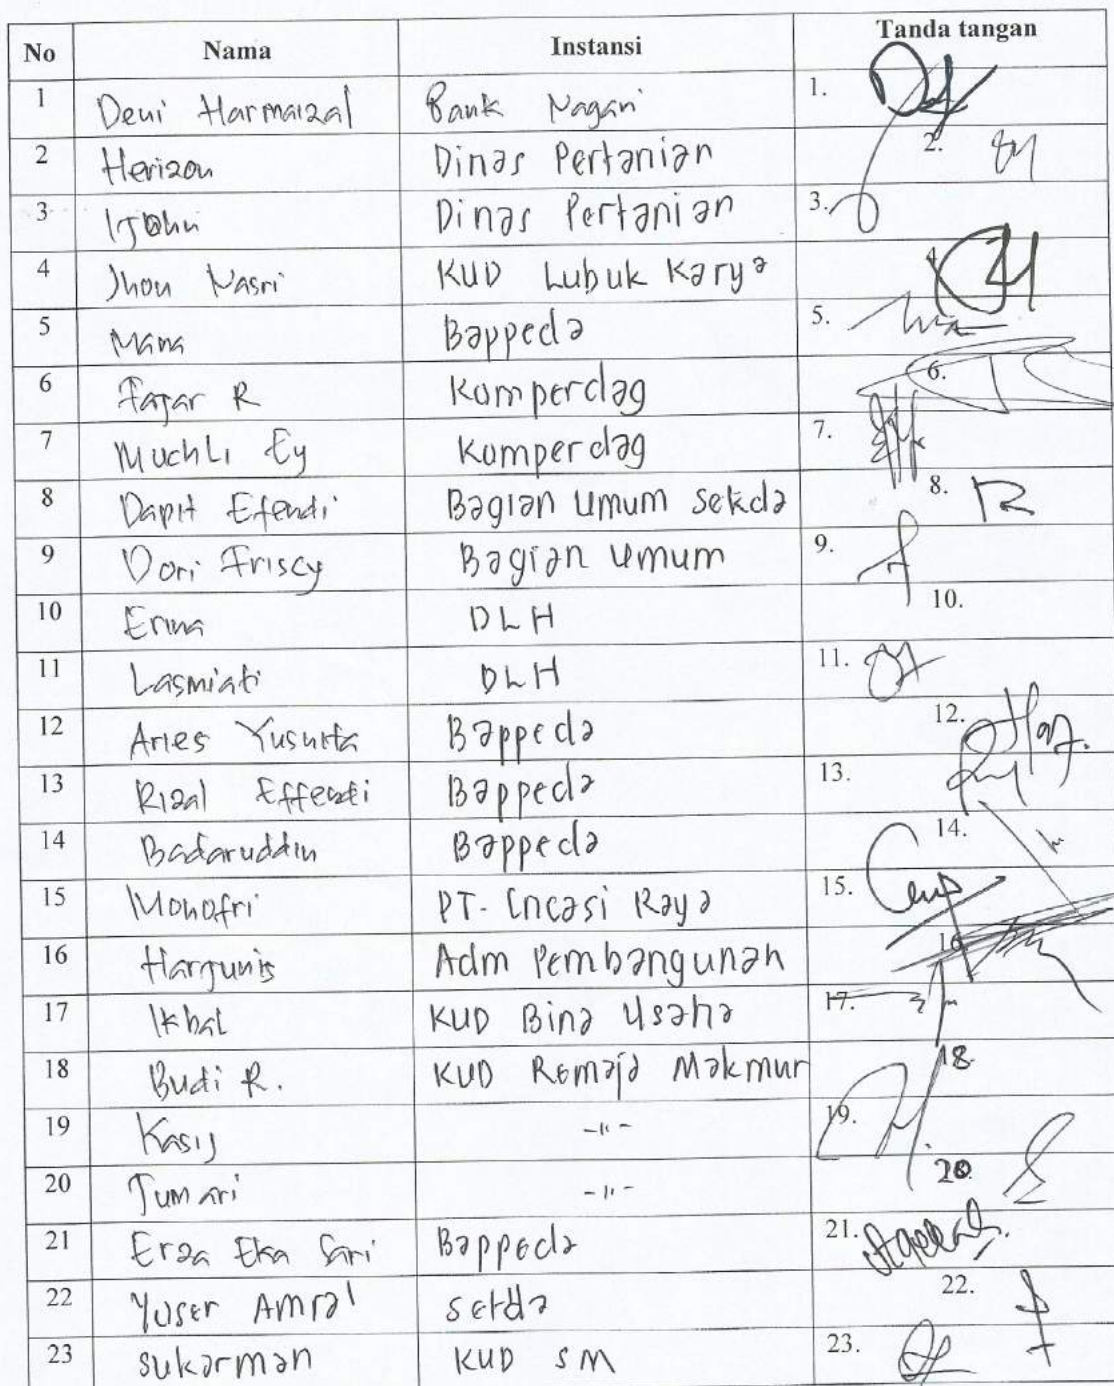 No Nama Instansi Tanda tangan
1 Devi Harmaizal Bank Nagari 1.
2 Herizon Dinas Pertanian 2.
3 Dinas Pertanian 3.
4 Jhon Nasri KUD Lubuk Karya 4.
5 Bappeda 5.
6 Fajar R Komperdag 6.
7 Muchli Ey Komperdag 7.
8 Dapit Efendi Bagian Umum Sekda 8.
9 Dori Friscy Bagian Umum 9.
10 Erina DLH 10.
11 Lasmiati DLH 11.
12 Aries Yusurta Bappeda 12.
13 Rizal Effendi Bappeda 13.
14 Badaruddin Bappeda 14.
15 Monofri PT. Incasi Raya 15.
16 Hargunis Adm Pembangunan 16
17 Ikbal KUD Bina Usaha 17.
18 Budi R. KUD Remaja Makmur 18.
19 Kasij -11- 19.
20 Tumari -11- 20.
21 Erza Eka Sari Bappeda 21.
22 Yuser Amral Setda 22.
23 Sukarman KUD SM 23.